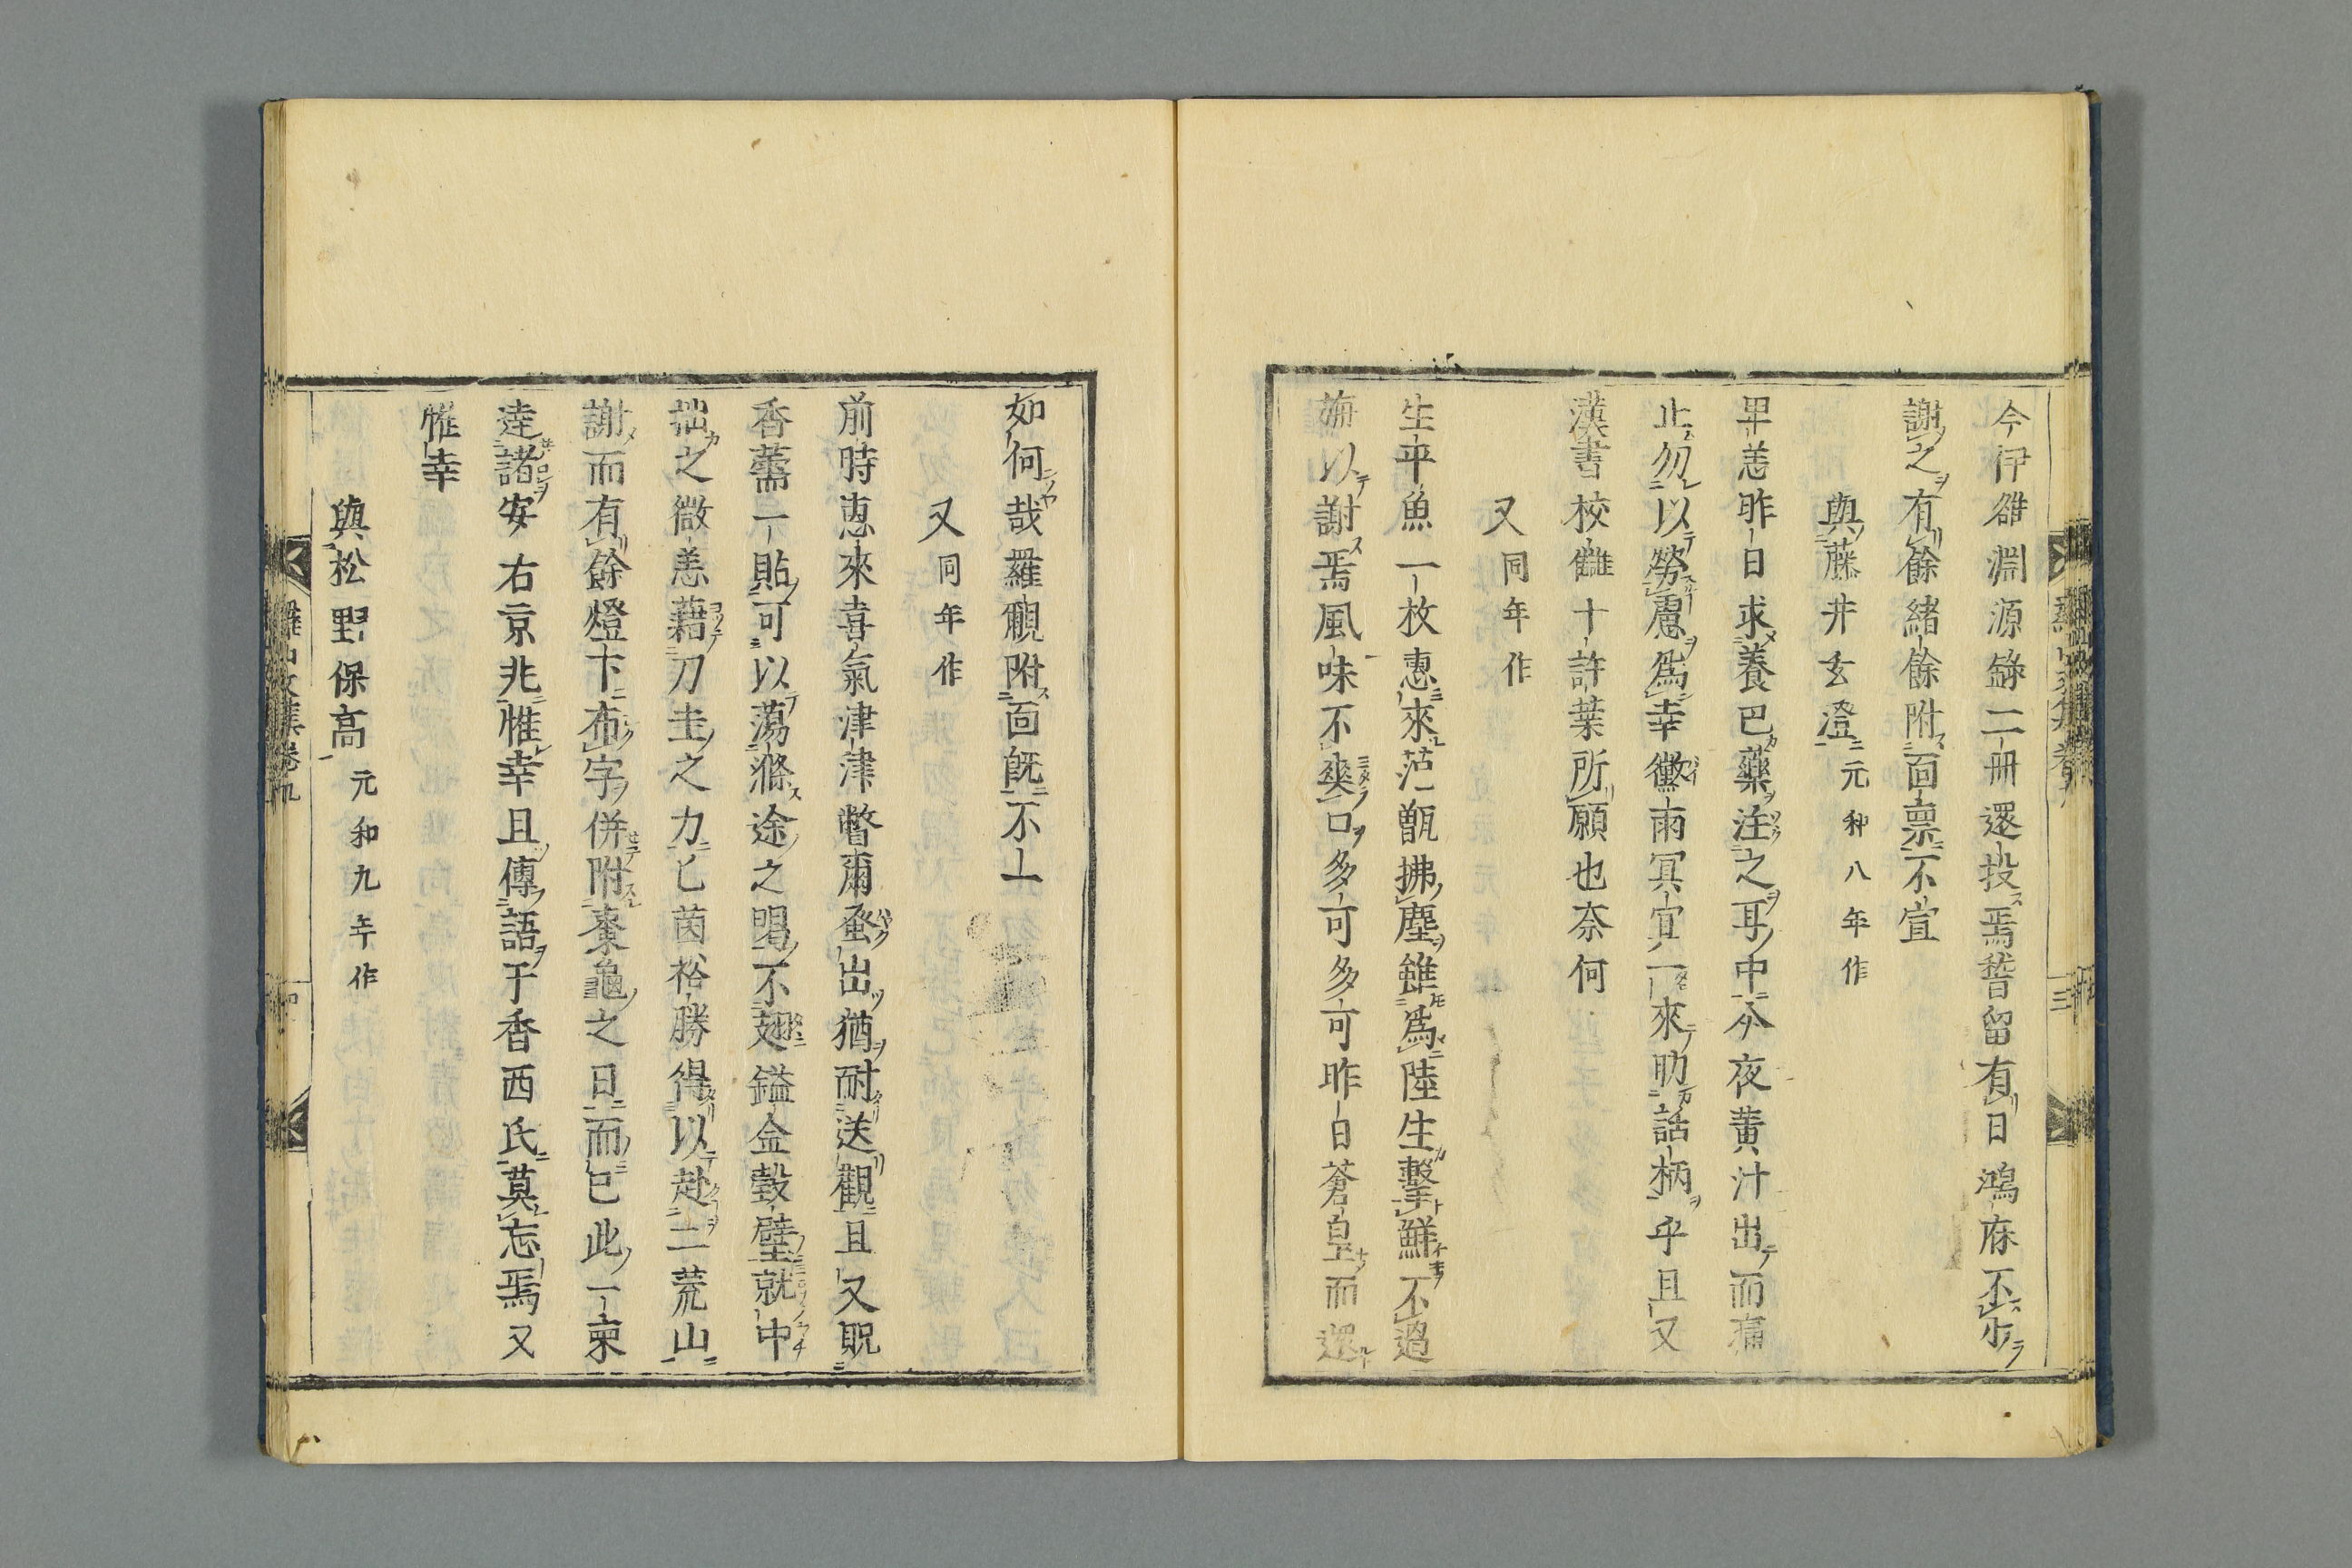 今伊雒淵源錄二册還投焉嵆留有日鴻庥不少
謝之有餘緖餘附面禀不宣
與藤井玄澄元和八年作
早恙昨日求養巴藥注之耳中今夜黃汁出而痛
止勿以勞慮爲幸黴雨冥冥一來助話柄乎且又
漢書校讎十許葉所願也奈何
又同年作
生平魚一枚惠來范甑拂塵雖爲陸生擊鮮不過
以謝焉風味不爽口多可多可昨日蒼皇而還
如何哉羅覼附面旣不一
又同年作
前時惠來喜氣津津瞥爾蚤出猶耐送觀且又貺
香薷一貼可以蕩滌途之暍不翅鎰金瑴璧就中
拙之微恙藉刀圭之力匕茵裕勝得以赴二荒山
謝而有餘燈下布字併附橐龜之日而已此一柬
達諸安右京兆惟幸且傳語于香西氏莫忘焉又
惟幸
與松野保高元和九年作
羅山文集卷九